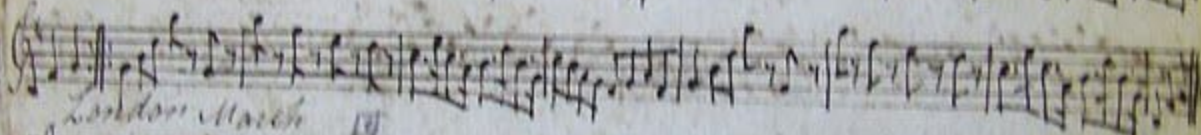 London March